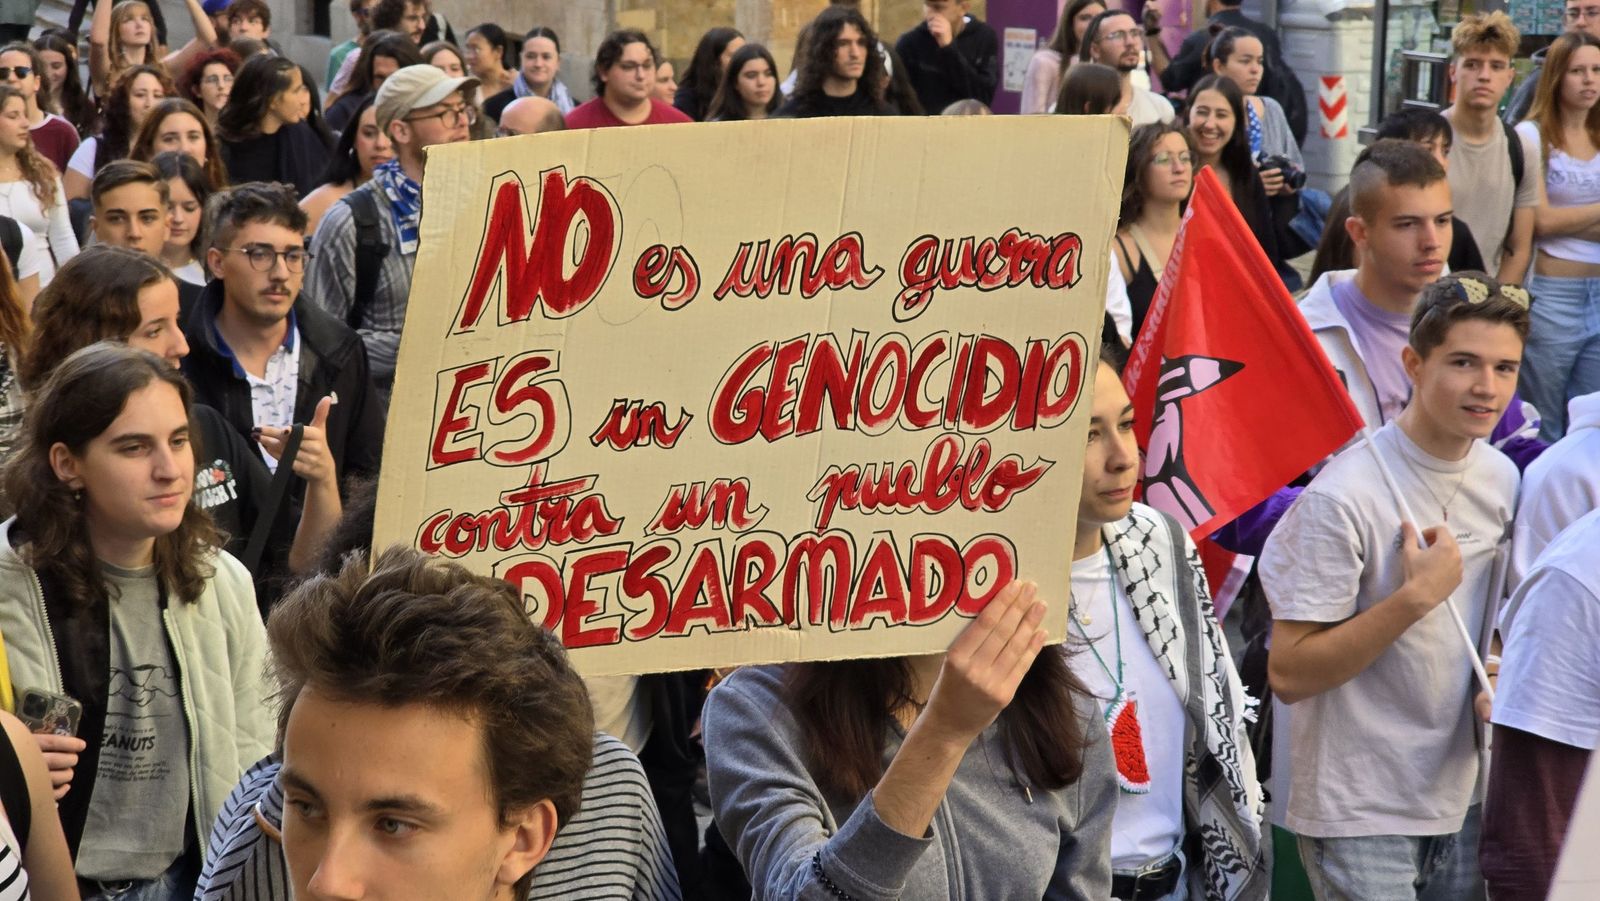 NO es una guerra
ES un GENOCIDIO
contra un pueblo
DESARMADO
PEANUTS